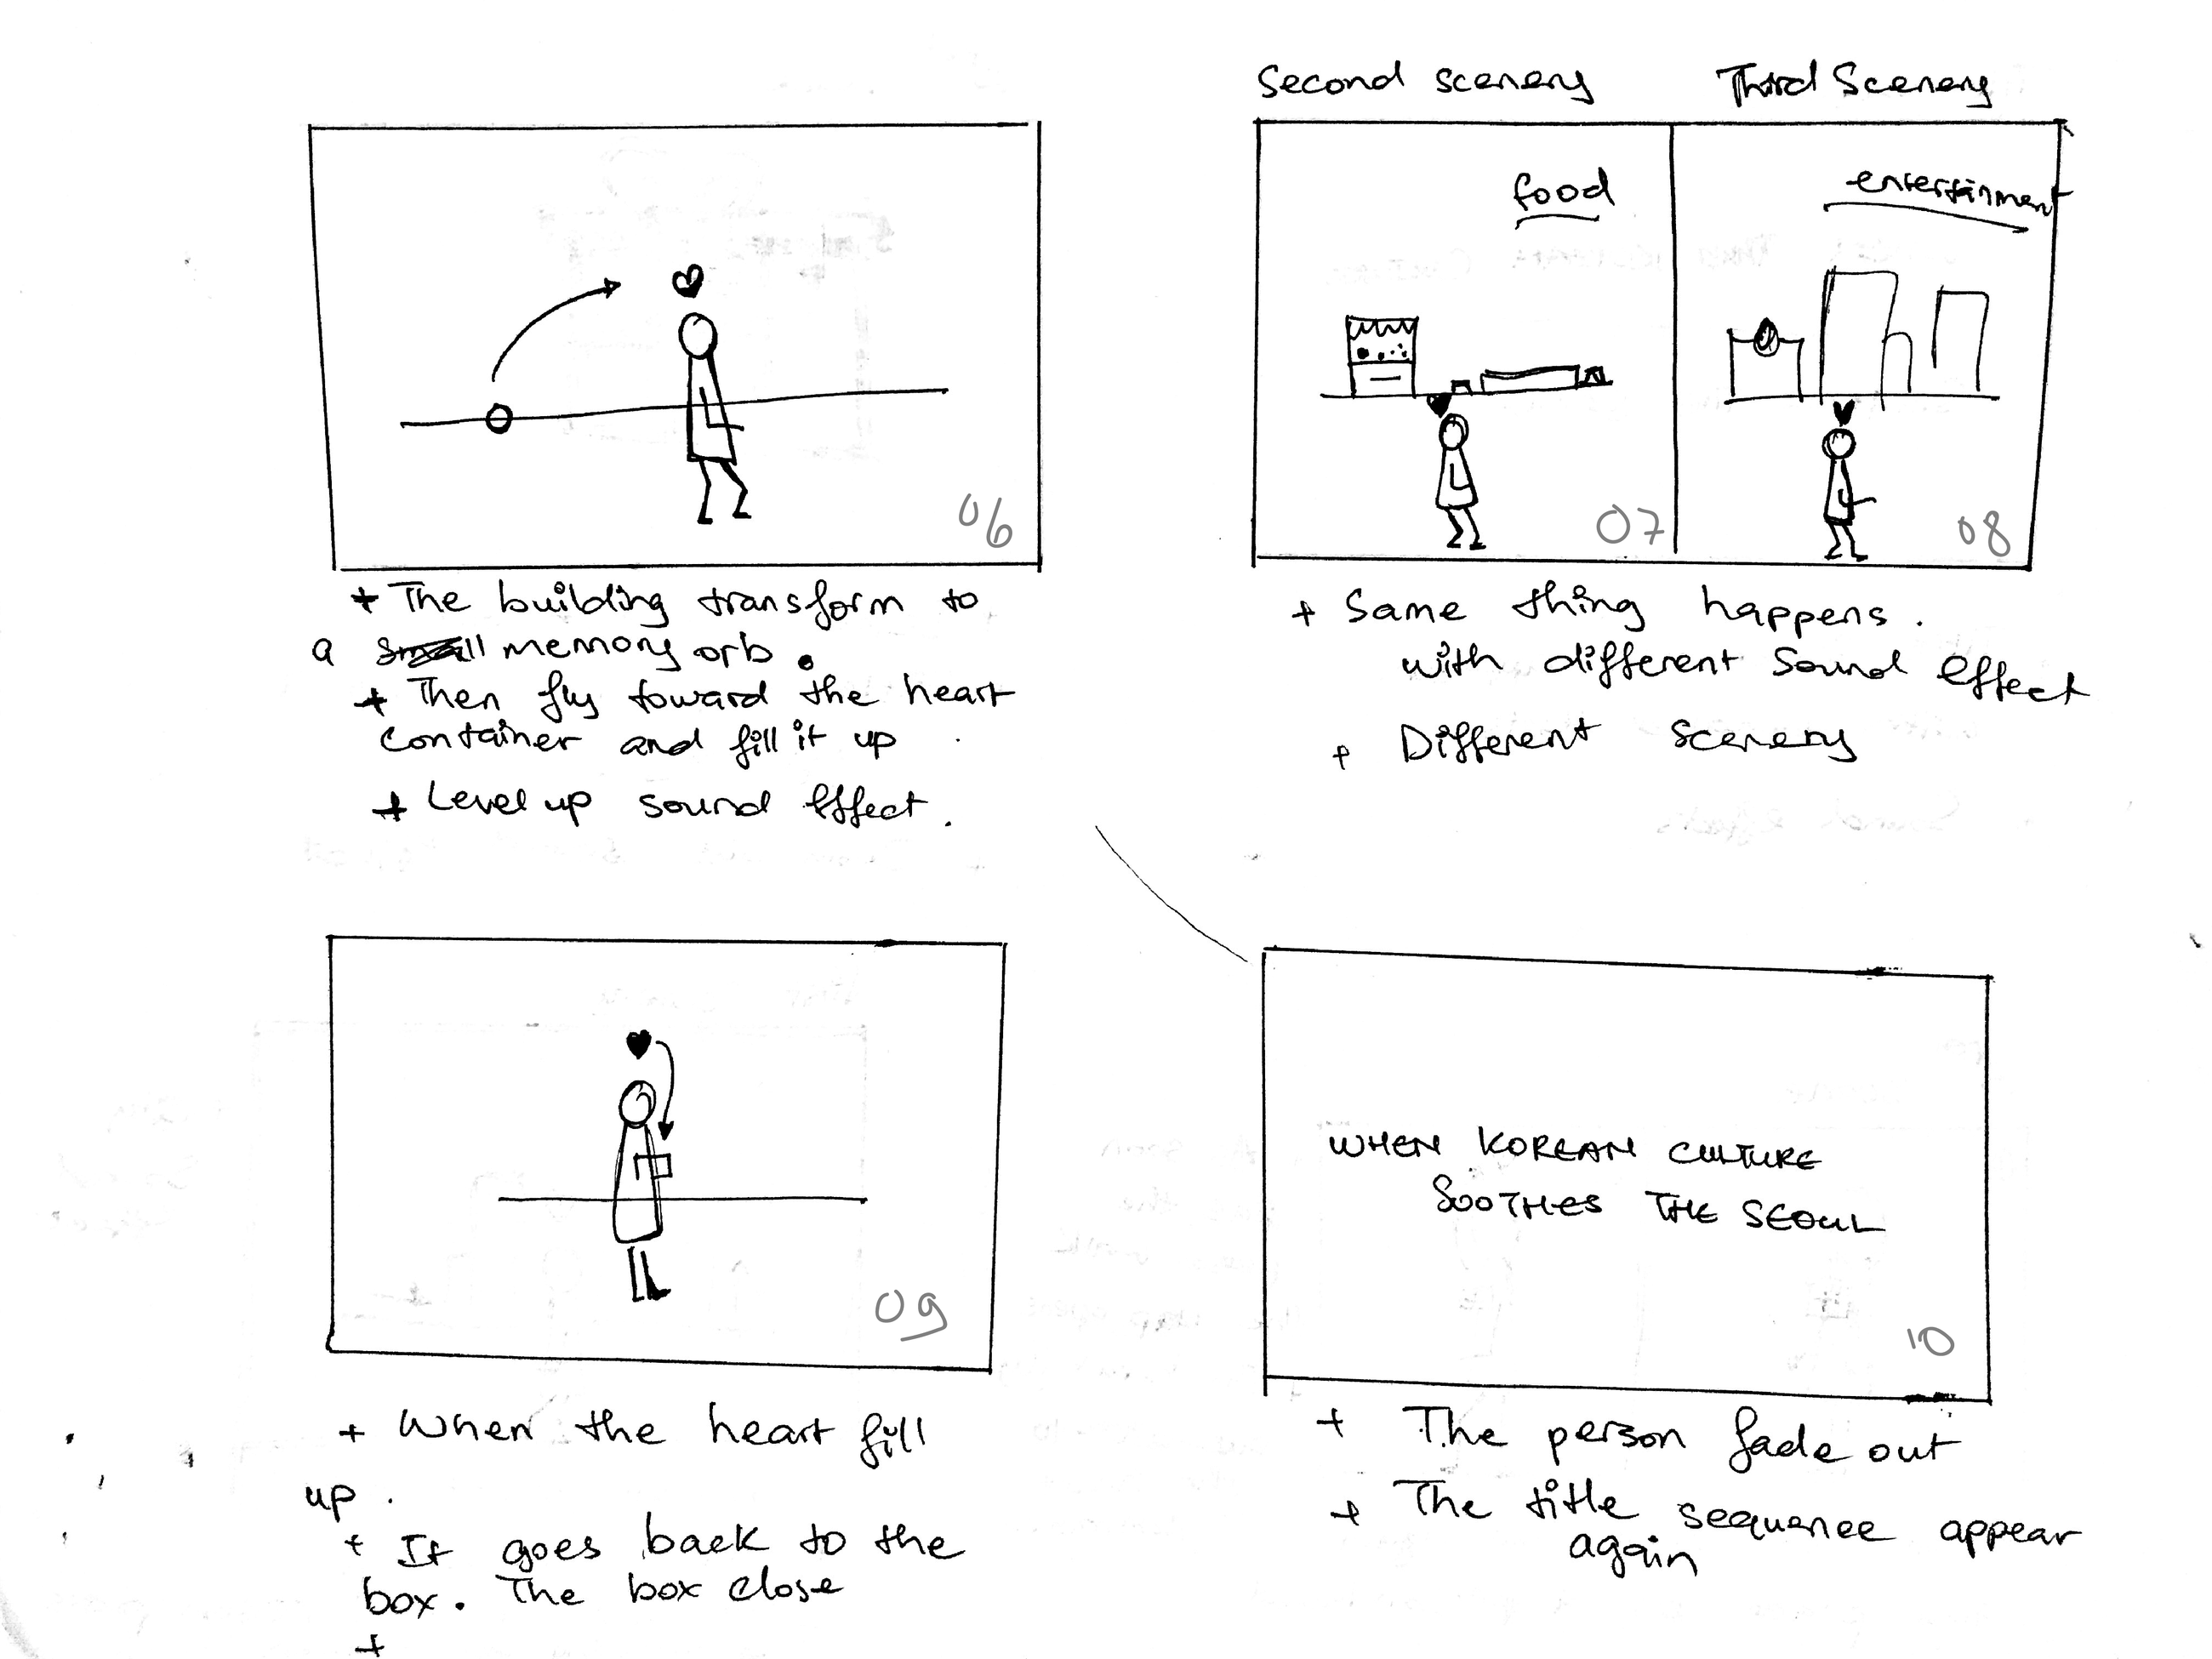 06
+ The building transform to
a small memory orb.
+ Then fly toward the heart
container and fill it up.
+ Level up sound effect.
Second scenery
Third Scenery
food
07
entertinment
08
+ Same thing happens.
with different sound effect
+ Different scenery
09
+ When the heart fill
up.
+ It goes back to the
box. The box close
+
WHEN KOREAN CULTURE
SOOTHES THE SEOUL
10
+ The person fade out
+ The title sequence appear
again